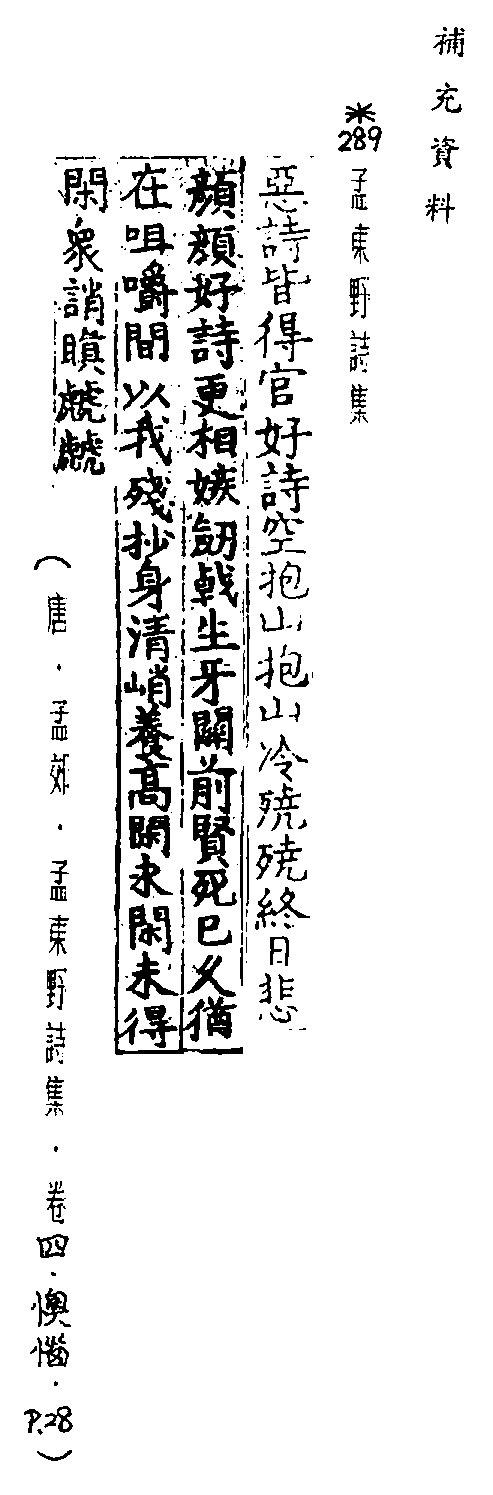 補充資料
*289 孟東野詩集
惡詩皆得官好詩空抱山抱山冷殑殑終日悲
顏顏好詩更相嫉劒戟生牙關前賢死已久猶
在咀嚼間以我殘抄身清峭養高閑求閑未得
閑衆誚瞋虤虤
(唐.孟郊.孟東野詩集.卷四.懊惱.P.28)